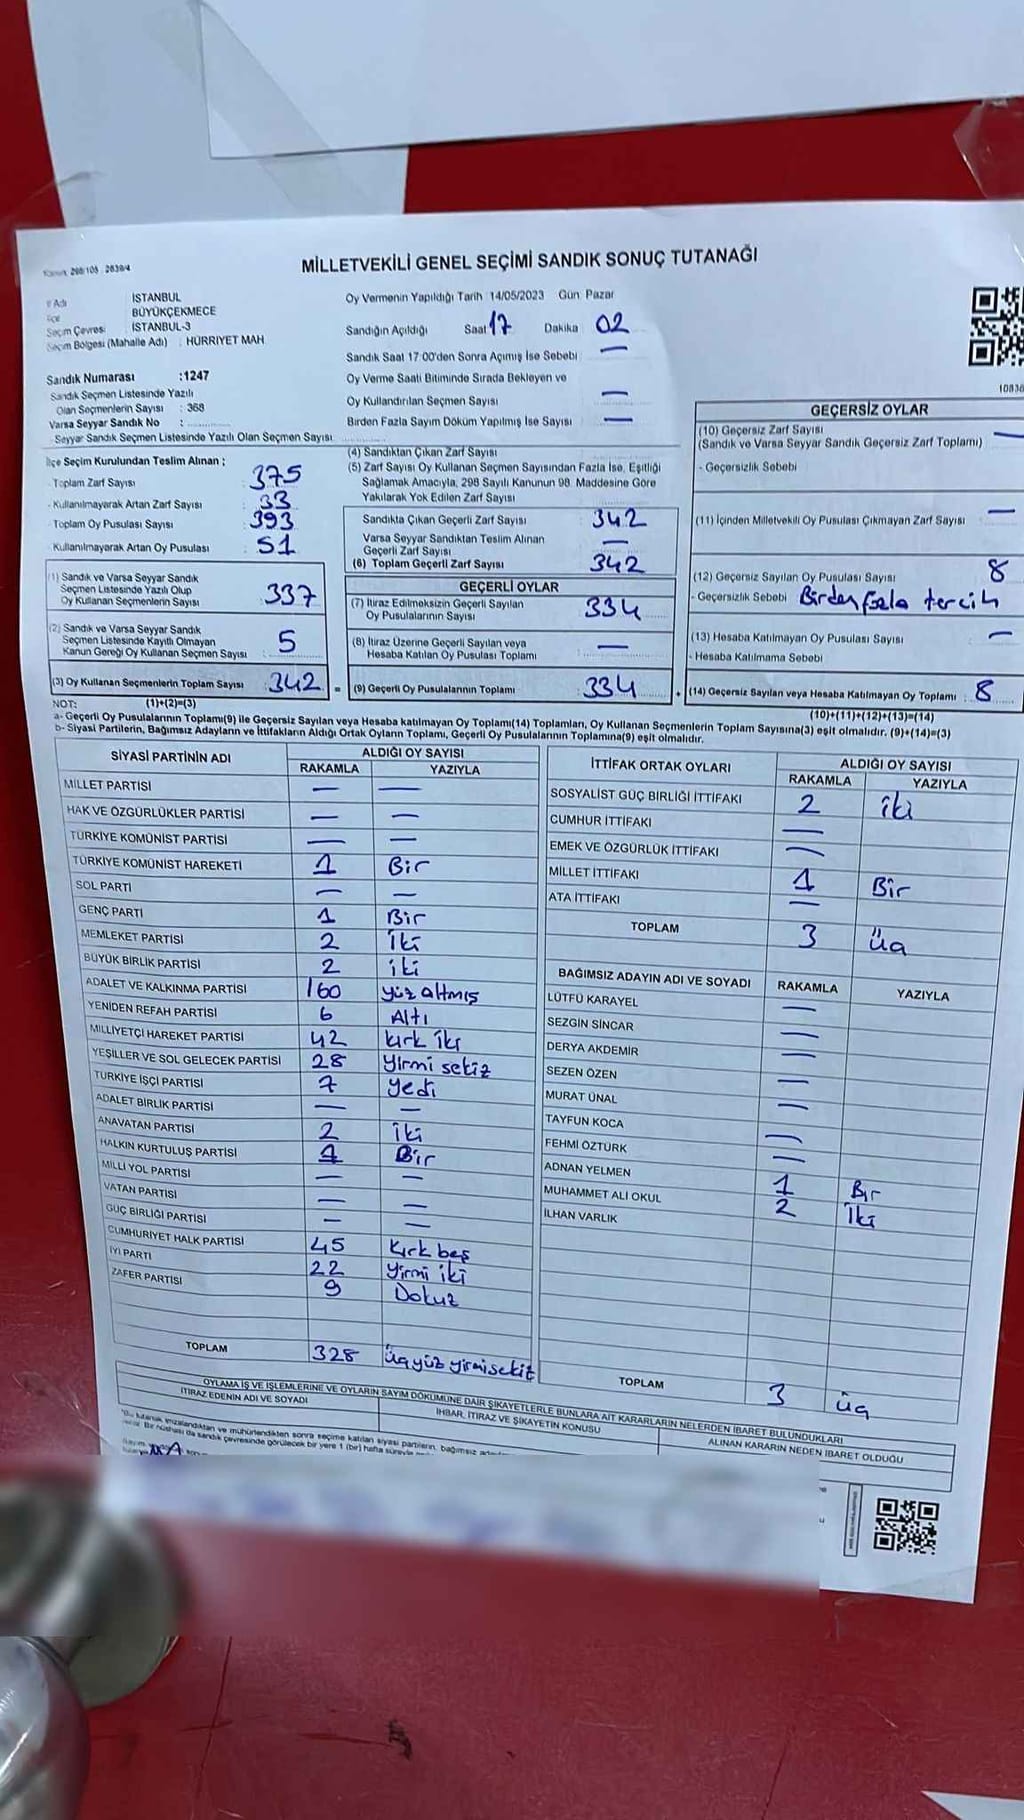 MİLLETVEKİLİ GENEL SEÇİMİ SANDIK SONUÇ TUTANAĞI
İl Adı İSTANBUL
İlçe BÜYÜKÇEKMECE
Seçim Çevresi İSTANBUL-3
Seçim Bölgesi (Mahalle Adı) : HÜRRİYET MAH
Sandık Numarası :1247
Sandık Seçmen Listesinde Yazılı
Olan Seçmenlerin Sayısı : 368
Varsa Seyyar Sandık No :
Seyyar Sandık Seçmen Listesinde Yazılı Olan Seçmen Sayısı
Oy Vermenin Yapıldığı Tarih 14/05/2023 Gün Pazar
Sandığın Açıldığı Saat 17 Dakika 02
Sandık Saat 17:00'den Sonra Açımış İse Sebebi —
Oy Verme Saati Bitiminde Sırada Bekleyen ve
Oy Kullandırılan Seçmen Sayısı —
Birden Fazla Sayım Döküm Yapılmış İse Sayısı —
İlçe Seçim Kurulundan Teslim Alınan ;
- Toplam Zarf Sayısı 375
- Kullanılmayarak Artan Zarf Sayısı 33
- Toplam Oy Pusulası Sayısı 393
- Kullanılmayarak Artan Oy Pusulası 51
(1) Sandık ve Varsa Seyyar Sandık
Seçmen Listesinde Yazılı Olup
Oy Kullanan Seçmenlerin Sayısı 337
(2) Sandık ve Varsa Seyyar Sandık
Seçmen Listesinde Kayıtlı Olmayan
Kanun Gereği Oy Kullanan Seçmen Sayısı 5
(3) Oy Kullanan Seçmenlerin Toplam Sayısı 342 =
(1)+(2)=(3)
(4) Sandıktan Çıkan Zarf Sayısı
(5) Zarf Sayısı Oy Kullanan Seçmen Sayısından Fazla İse, Eşitliği
Sağlamak Amacıyla, 298 Sayılı Kanunun 98. Maddesine Göre
Yakılarak Yok Edilen Zarf Sayısı
Sandıkta Çıkan Geçerli Zarf Sayısı 342
Varsa Seyyar Sandıktan Teslim Alınan
Geçerli Zarf Sayısı —
(6) Toplam Geçerli Zarf Sayısı 342
GEÇERLİ OYLAR
(7) İtiraz Edilmeksizin Geçerli Sayılan
Oy Pusulalarının Sayısı 334
(8) İtiraz Üzerine Geçerli Sayılan veya
Hesaba Katılan Oy Pusulası Toplamı —
(9) Geçerli Oy Pusulalarının Toplamı 334 +
GEÇERSİZ OYLAR
(10) Geçersiz Zarf Sayısı
(Sandık ve Varsa Seyyar Sandık Geçersiz Zarf Toplamı) —
- Geçersizlik Sebebi
(11) İçinden Milletvekili Oy Pusulası Çıkmayan Zarf Sayısı —
(12) Geçersiz Sayılan Oy Pusulası Sayısı 8
- Geçersizlik Sebebi Birden fazla tercih
(13) Hesaba Katılmayan Oy Pusulası Sayısı —
- Hesaba Katılmama Sebebi
(14) Geçersiz Sayılan veya Hesaba Katılmayan Oy Toplamı : 8
(10)+(11)+(12)+(13)=(14)
NOT:
a- Geçerli Oy Pusulalarının Toplamı(9) ile Geçersiz Sayılan veya Hesaba katılmayan Oy Toplamı(14) Toplamları, Oy Kullanan Seçmenlerin Toplam Sayısına(3) eşit olmalıdır. (9)+(14)=(3)
b- Siyasi Partilerin, Bağımsız Adayların ve İttifakların Aldığı Ortak Oyların Toplamı, Geçerli Oy Pusulalarının Toplamına(9) eşit olmalıdır.
SİYASİ PARTİNİN ADI ALDIĞI OY SAYISI
RAKAMLA YAZIYLA
MİLLET PARTİSİ — —
HAK VE ÖZGÜRLÜKLER PARTİSİ — —
TÜRKİYE KOMÜNİST PARTİSİ — —
TÜRKİYE KOMÜNİST HAREKETİ 1 Bir
SOL PARTİ — —
GENÇ PARTİ 1 Bir
MEMLEKET PARTİSİ 2 İki
BÜYÜK BİRLİK PARTİSİ 2 iki
ADALET VE KALKINMA PARTİSİ 160 yüz altmış
YENİDEN REFAH PARTİSİ 6 Altı
MİLLİYETÇİ HAREKET PARTİSİ 42 kırk iki
YEŞİLLER VE SOL GELECEK PARTİSİ 28 yirmi sekiz
TÜRKİYE İŞÇİ PARTİSİ 7 yedi
ADALET BİRLİK PARTİSİ — —
ANAVATAN PARTİSİ 2 iki
HALKIN KURTULUŞ PARTİSİ 1 Bir
MİLLİ YOL PARTİSİ — —
VATAN PARTİSİ — —
GÜÇ BİRLİĞİ PARTİSİ — —
CUMHURİYET HALK PARTİSİ 45 Kırk beş
İYİ PARTİ 22 yirmi iki
ZAFER PARTİSİ 9 Dokuz
TOPLAM 328 üçyüz yirmisekiz
İTTİFAK ORTAK OYLARI ALDIĞI OY SAYISI
RAKAMLA YAZIYLA
SOSYALİST GÜÇ BİRLİĞİ İTTİFAKI 2 iki
CUMHUR İTTİFAKI —
EMEK VE ÖZGÜRLÜK İTTİFAKI —
MİLLET İTTİFAKI 1 Bir
ATA İTTİFAKI —
TOPLAM 3 üç
BAĞIMSIZ ADAYIN ADI VE SOYADI RAKAMLA YAZIYLA
LÜTFÜ KARAYEL —
SEZGİN SİNCAR —
DERYA AKDEMİR —
SEZEN ÖZEN —
MURAT ÜNAL —
TAYFUN KOCA —
FEHMİ ÖZTÜRK —
ADNAN YELMEN 1 Bir
MUHAMMET ALİ OKUL 2 İki
İLHAN VARLIK
TOPLAM 3 üç
OYLAMA İŞ VE İŞLEMLERİNE VE OYLARIN SAYIM DÖKÜMÜNE DAİR ŞİKAYETLERLE BUNLARA AİT KARARLARIN NELERDEN İBARET BULUNDUKLARI
İTİRAZ EDENİN ADI VE SOYADI İHBAR, İTİRAZ VE ŞİKAYETİN KONUSU ALINAN KARARIN NEDEN İBARET OLDUĞU